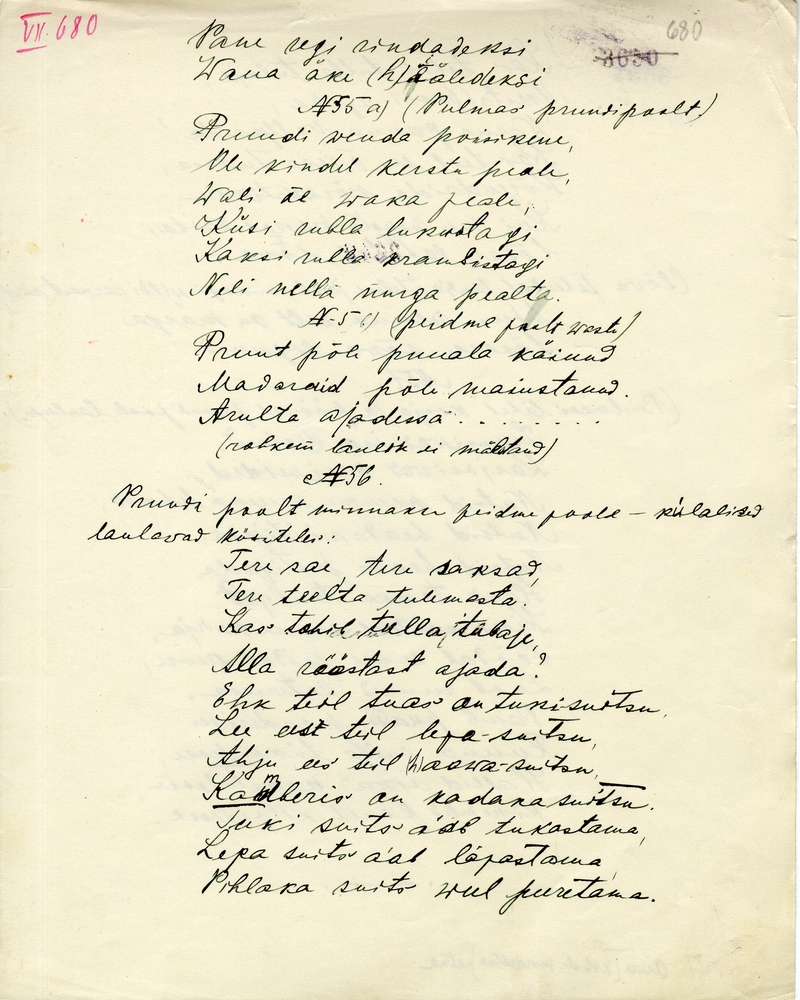 VII. 680
680
3650
Pane regi rindadeksi
Wana äke (h)ääledeksi
№55 a) (Pulmas pruudi poolt.)
Pruudi wenda poisikene,
Ole kindel kerstu peale,
Wali ole waka peale,
Küsi rubla lukustagi
Kaksi rubla kraubistagi
Neli nella nurga pealta.
№5 b) (peidme poolt wastu)
Pruut põle puuala käinud
Madaraid põle maiustanud.
Arulta ajadessa . . . . . . . .
(rohkem laulik ei mäletand)
№56.
Pruudi poolt minnakse peidme poole – külalised
laulavad küsiteles:
Tere sae, tere saksad,
Tere teelta tulemasta.
Kas tohib tulla, tubaje,
Alla räästast ajada?
Ehk teil tuas on tuki suitsu,
Lee eest teil lepa-suitsu,
Ahju ees teil (h)aawa-suitsu,
Kamberis on kadaka suitsu.
Tuki suits aab tukastama,
Lepa suits aab läpastama
Pihlaka suits weel peretama.